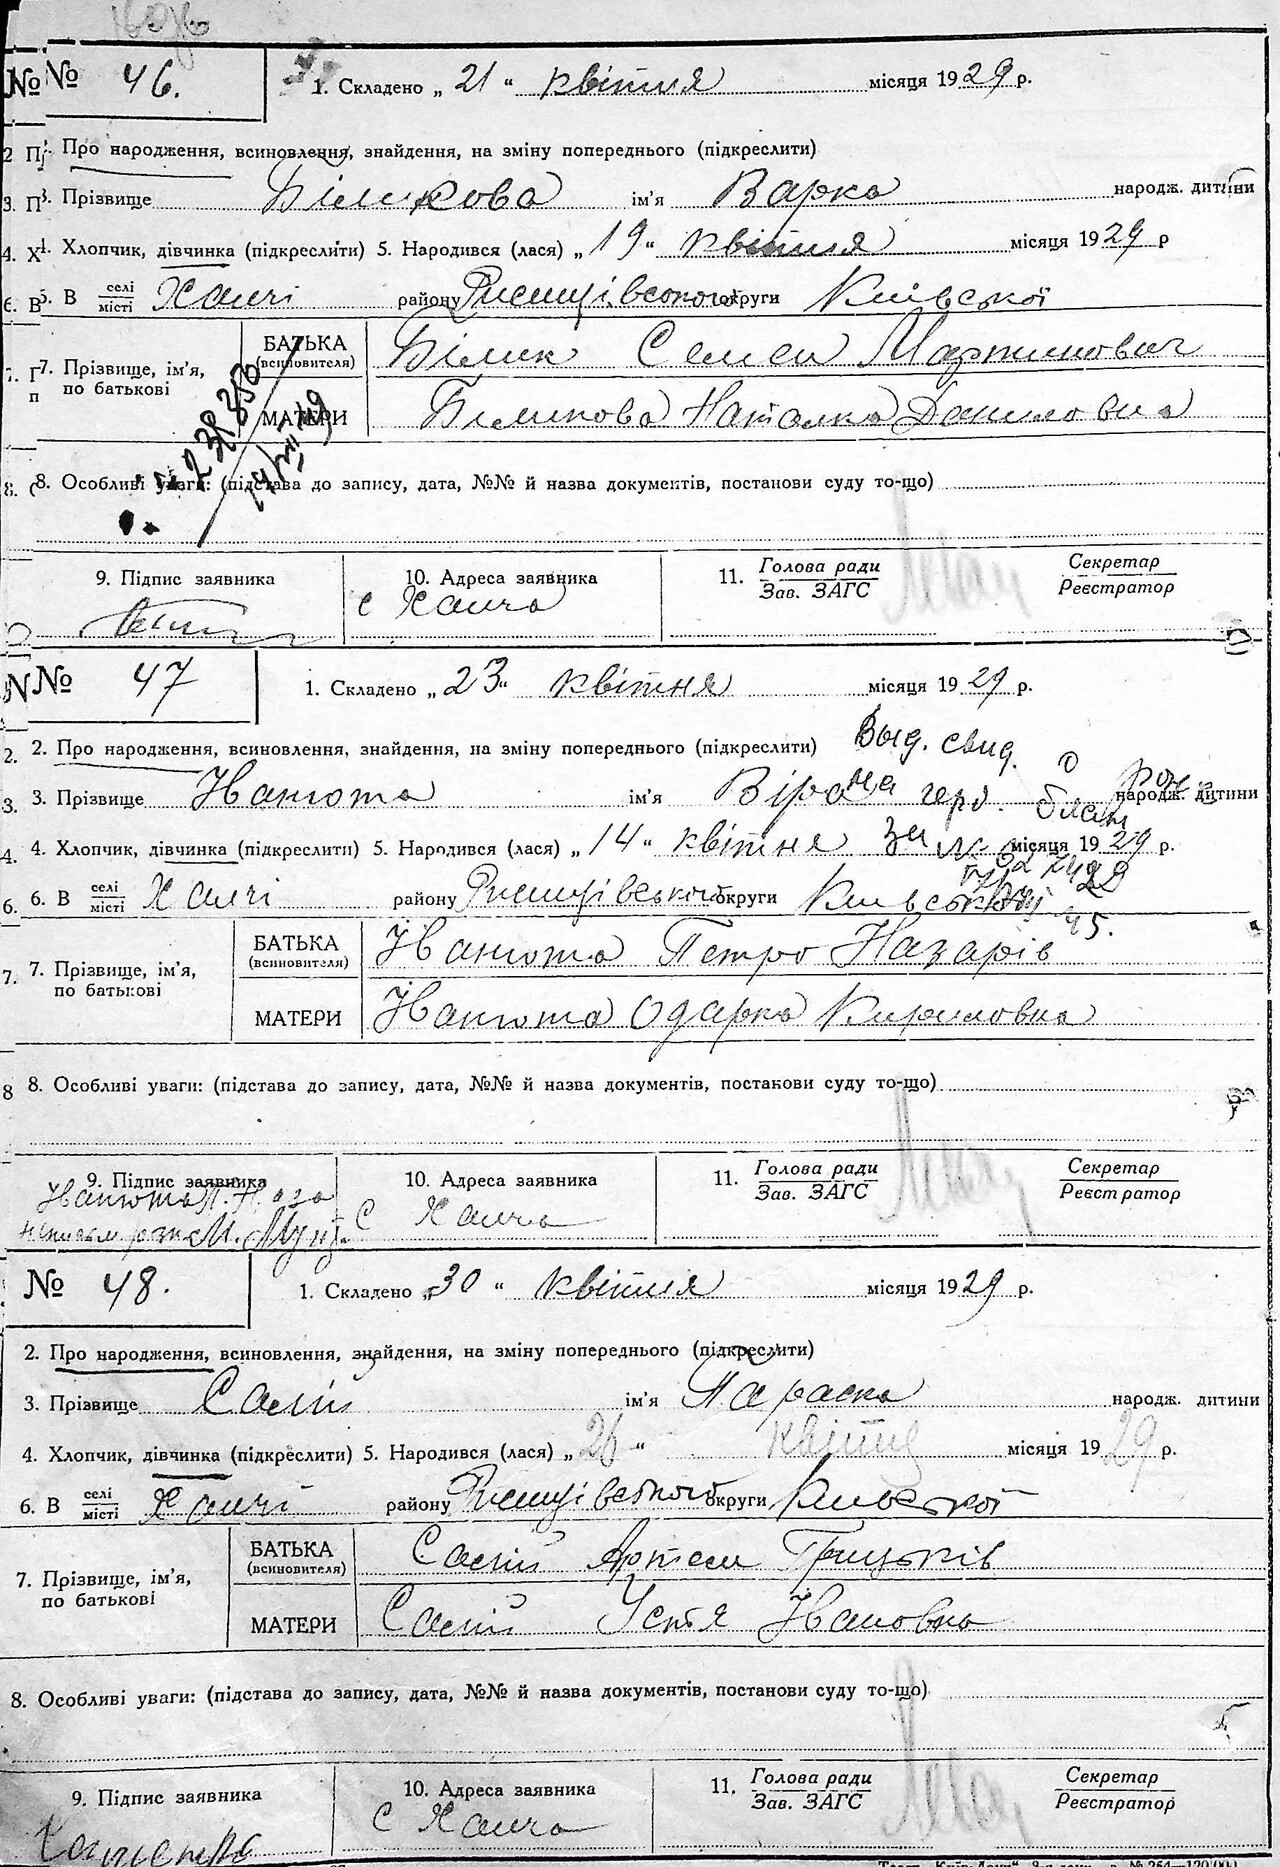 № № 46. 1. Складено „ 21 “ квітня місяця 1929 р.
2 Про народження, всиновлення, знайдення, на зміну попереднього (підкреслити)
3. Прізвище Біликова ім'я Варка народж. дитини
4. Хлопчик, дівчинка (підкреслити) 5. Народився (лася) „ 19 “ квітня місяця 1929 р
6. В селі/місті Халчі району Ржищівського округи Київської
7. Прізвище, ім'я, по батькові
БАТЬКА (всиновителя) Білик Семен Мартинович
МАТЕРИ Біликова Наталка Даниловна
8. Особливі уваги: (підстава до запису, дата, №№ й назва документів, постанови суду то-що)
9. Підпис заявника
10. Адреса заявника
с Халча
11. Голова ради / Зав. ЗАГС
Секретар / Реєстратор
№ 47 1. Складено „ 23 “ квітня місяця 1929 р.
2. Про народження, всиновлення, знайдення, на зміну попереднього (підкреслити) Выд. свид. о
3. Прізвище Іванюта ім'я Віра народж. дитини
4. Хлопчик, дівчинка (підкреслити) 5. Народився (лася) „ 14 “ квітня місяця 1929 р.
6. В селі/місті Халчі району Ржищівського округи Київської
7. Прізвище, ім'я, по батькові
БАТЬКА (всиновителя) Іванюта Петро Назарів
МАТЕРИ Іванюта Одарка Кириловна
8. Особливі уваги: (підстава до запису, дата, №№ й назва документів, постанови суду то-що)
9. Підпис заявника
10. Адреса заявника
с Халча
11. Голова ради / Зав. ЗАГС
Секретар / Реєстратор
№ 48. 1. Складено „ 30 “ квітня місяця 1929 р.
2. Про народження, всиновлення, знайдення, на зміну попереднього (підкреслити)
3. Прізвище Салій ім'я Параска народж. дитини
4. Хлопчик, дівчинка (підкреслити) 5. Народився (лася) „ 26 “ квітня місяця 1929 р.
6. В селі/місті Халчі району Ржищівського округи Київської
7. Прізвище, ім'я, по батькові
БАТЬКА (всиновителя) Салій Артем Грицьків
МАТЕРИ Салій Устя Івановна
8. Особливі уваги: (підстава до запису, дата, №№ й назва документів, постанови суду то-що)
9. Підпис заявника
10. Адреса заявника
с Халча
11. Голова ради / Зав. ЗАГС
Секретар / Реєстратор